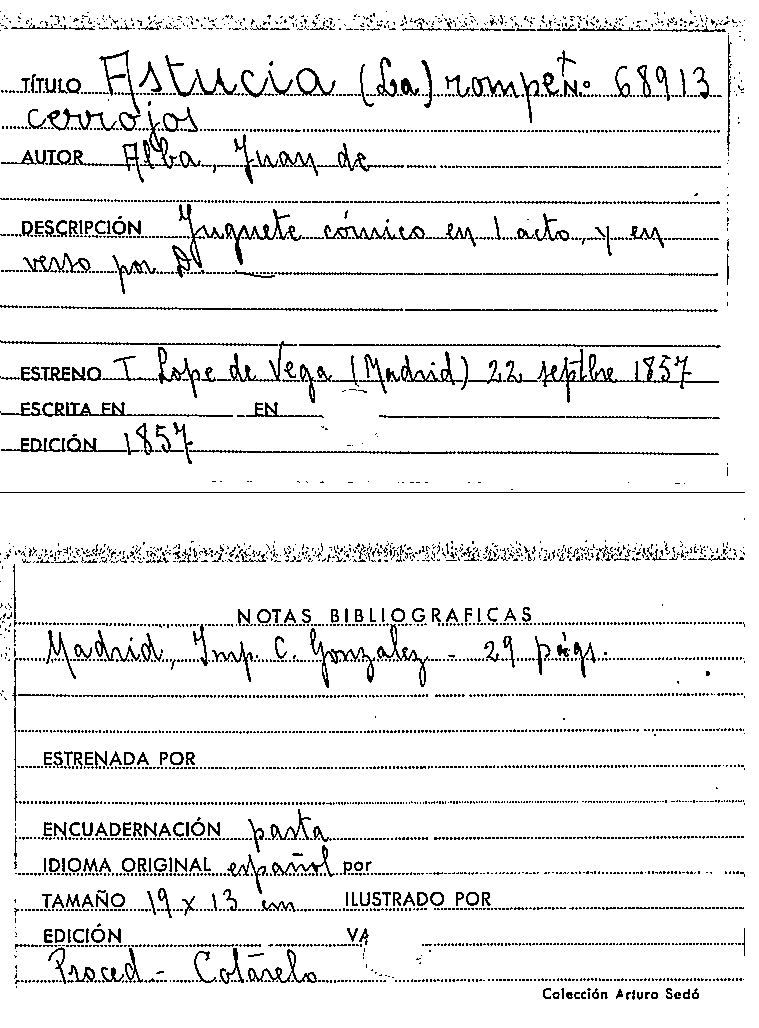 TÍTULO Astucia (La) rompe N.º 68913
cerrojos
AUTOR Alba, Juan de
DESCRIPCIÓN Juguete cómico en 1 acto, y en
verso por D.
ESTRENO T. Lope de Vega (Madrid) 22 septbre 1857
ESCRITA EN EN
EDICIÓN 1857
NOTAS BIBLIOGRAFICAS
Madrid, Imp. C. Gonzalez - 29 págs.
ESTRENADA POR
ENCUADERNACIÓN pasta
IDIOMA ORIGINAL español por
TAMAÑO 19 x 13 cm ILUSTRADO POR
EDICIÓN VA
Proced.- Cotarelo
Colección Arturo Sedó